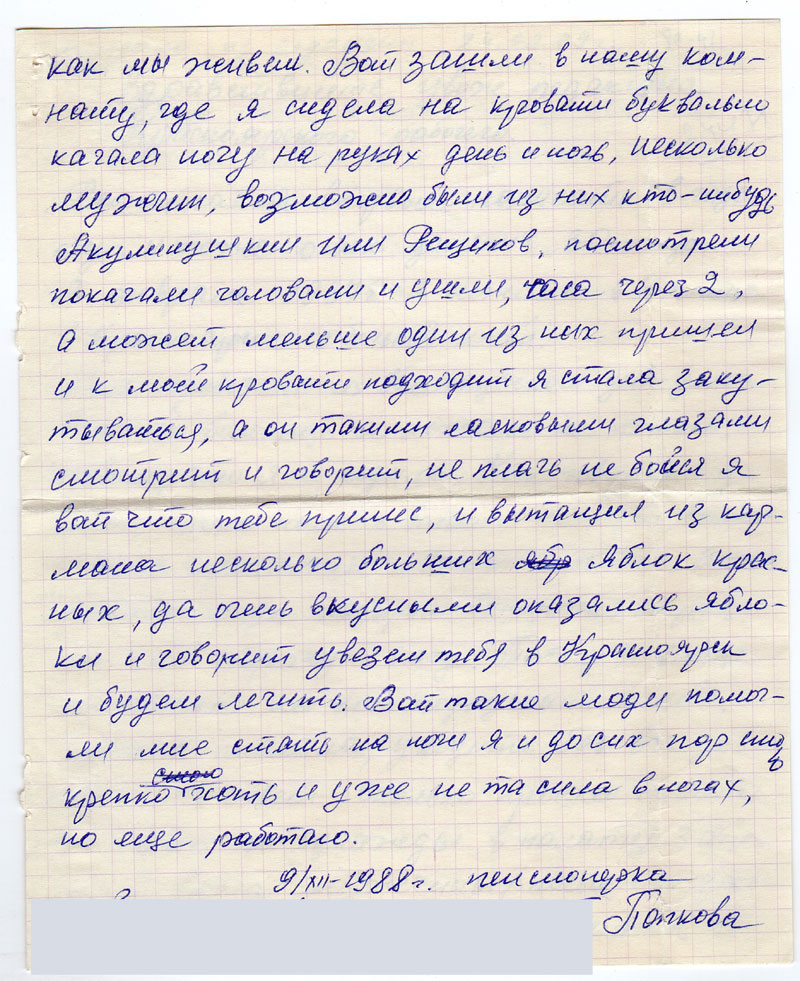 как мы живем. Вот зашли в нашу ком-
нату, где я сидела на кровати буквально
качала ногу на руках день и ночь, несколько
мужчин, возможно были из них кто-нибудь
Акулинушкин или Рещиков, посмотрели
покачали головами и ушли, часа через 2,
а может меньше один из них пришел
и к моей кровати подходит я стала заку-
тываться, а он такими ласковыми глазами
смотрит и говорит, не плачь не бойся я
вот что тебе принес, и вытащил из кар-
мана несколько больших яблок крас-
ных, да очень вкусными оказались ябло-
ки и говорит увезем тебя в Красноярск
и будем лечить. Вот такие люди помог-
ли мне стать на ноги я и до сих пор
крепко хоть и уже не та сила в ногах,
но еще работаю.
9/XII-1988г. пенсионерка
Попкова